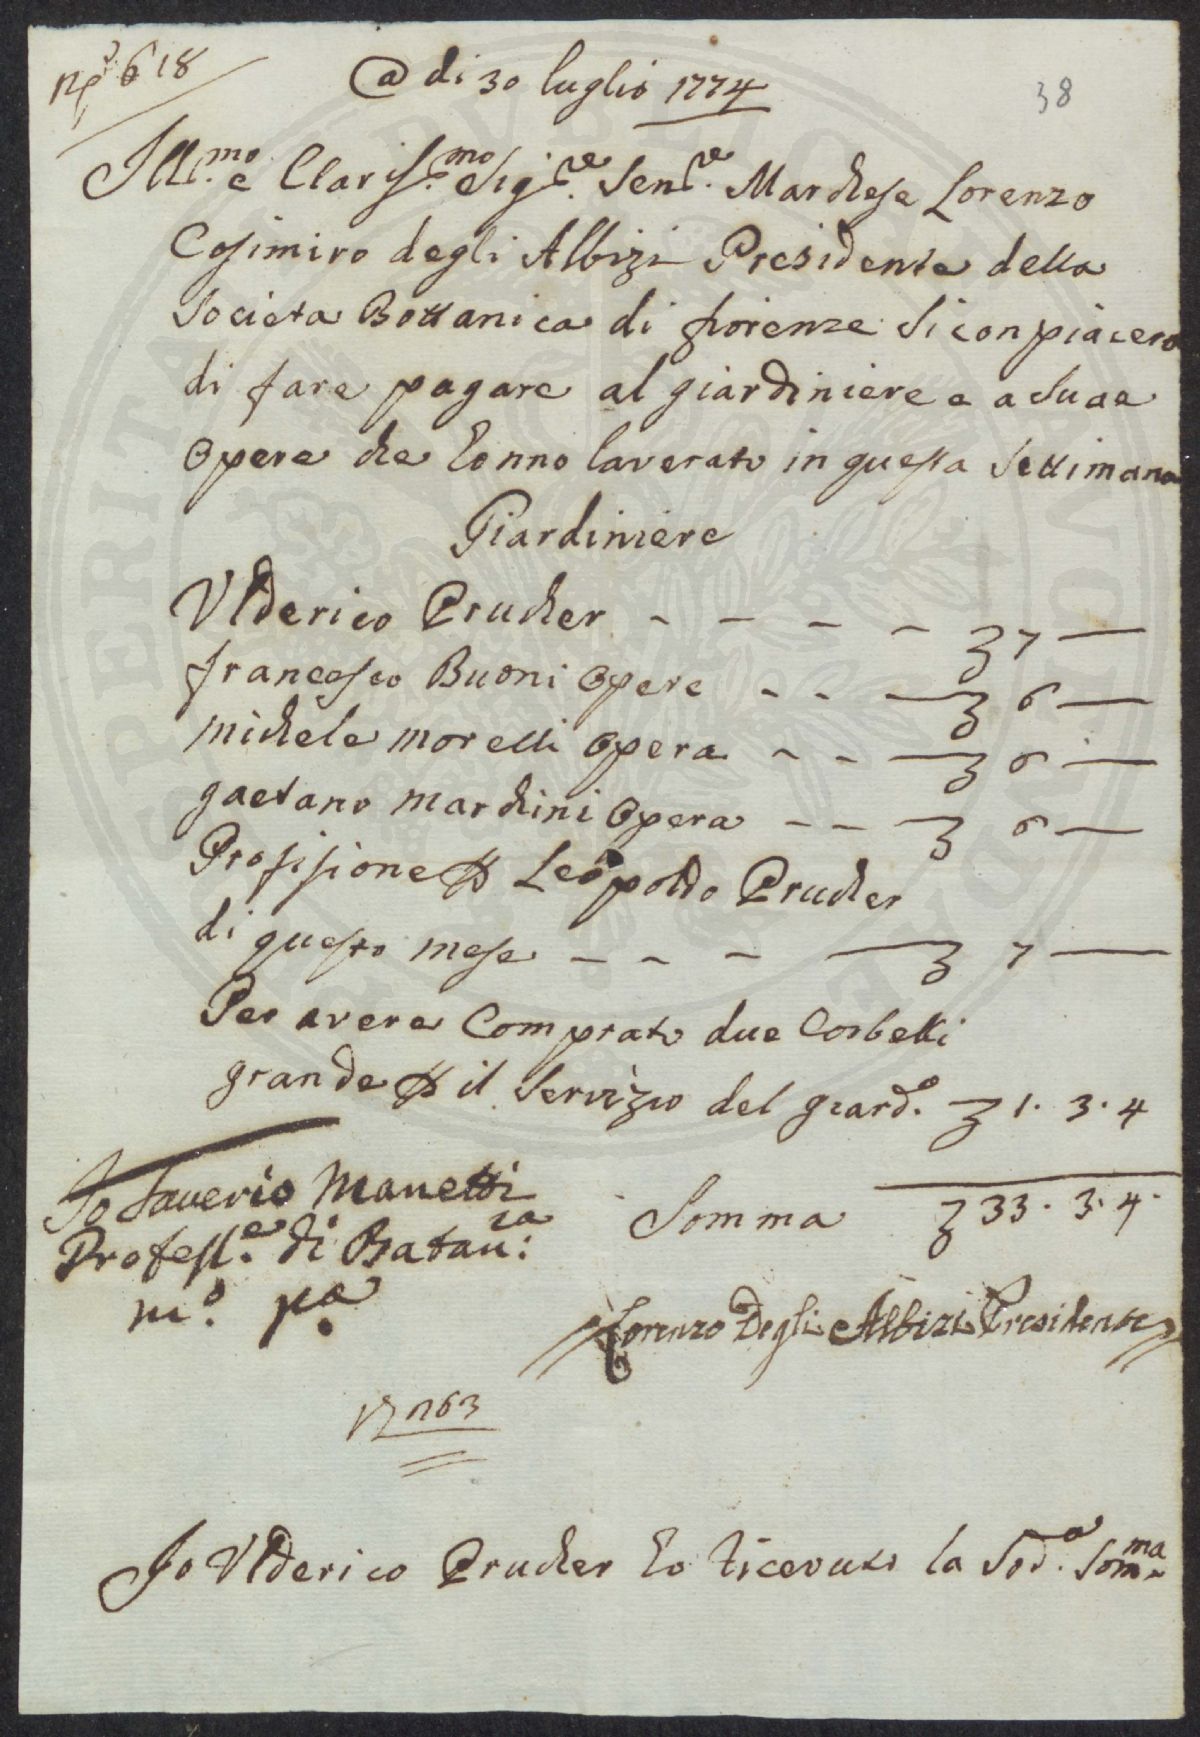 Np.º 618
@ di 30 luglio 1774
38
Ill.mo e Claris.mo Sig.re Sen.re Marchese Lorenzo
Cosimiro degli Albizi Presidente della
Societa Bottanica di fiorenze Si conpiacera
di fare pagare al giardiniere e a Sua e
Opere che Eonno laverato in questa Settimana
Giardiniere
Ulderico Prucher - - - - 7 —
francesco Buoni Opere - - — 6 —
michele morelli Opera - - — 6 —
gaetano marchini Opera - - — 6 —
Profisione Leopoldo Prucher
di questo mese - - - — 7 —
Per avere Comprato due Corbelli
grande il Servizio del giard.º 1. 3. 4
Somma 33. 3. 4.
Io Saverio Manetti
Profess.e di Botan:ca
m.º p.a
Lorenzo Degli Albizi Presidente
n 63
Io Ulderico Prucher Eo Ricevuto la Sod.a Somma